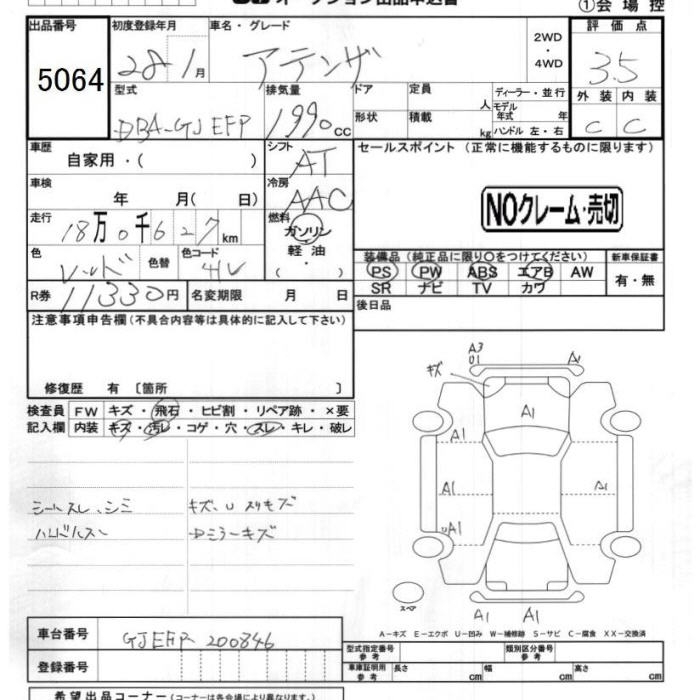 オークション出品申込書
①会場控
出品番号 初度登録年月 車名・グレード 2WD・4WD 評価点
5064 28 1月 アテンザ 3.5
型式 排気量 ドア 定員 人 ディーラー・並行 外装 内装
DBA-GJEFP 1990cc 形状 積載 kg モデル年式 年 ハンドル 左・右 C C
車歴 自家用・( ) シフト AT セールスポイント (正常に機能するものに限ります)
車検 年 月( 日) 冷房 AAC
NOクレーム・売切
走行 18万0千627km 燃料 ガソリン・軽油・( )
色 レッド 色替 色コード 41V
装備品 (純正品に限り○をつけてください) 新車保証書
PS PW ABS エアB AW 有・無
SR ナビ TV カワ
R券 11330円 名変期限 月 日 後日品
注意事項申告欄 (不具合内容等は具体的に記入して下さい)
修復歴 有 〔箇所 〕
検査員 FW キズ・飛石・ヒビ割・リペア跡・×要
記入欄 内装 キズ・汚レ・コゲ・穴・スレ・キレ・破レ
シートスレ、シミ キズ、U スリキズ
ハンドルスレ ドミラーキズ
A3
01
A
キズ
A1
A1
A1 A1
UA1
スペア
A1 A1
A-キズ E-エクボ U-凹み W-補修跡 S-サビ C-腐食 XX-交換済
車台番号 GJEFP-200846
登録番号
型式指定番号 参考 類別区分番号 参考
車庫証明用 参考 長さ cm 幅 cm 高さ cm
希望出品コーナー (コーナーは各会場により異なります。)